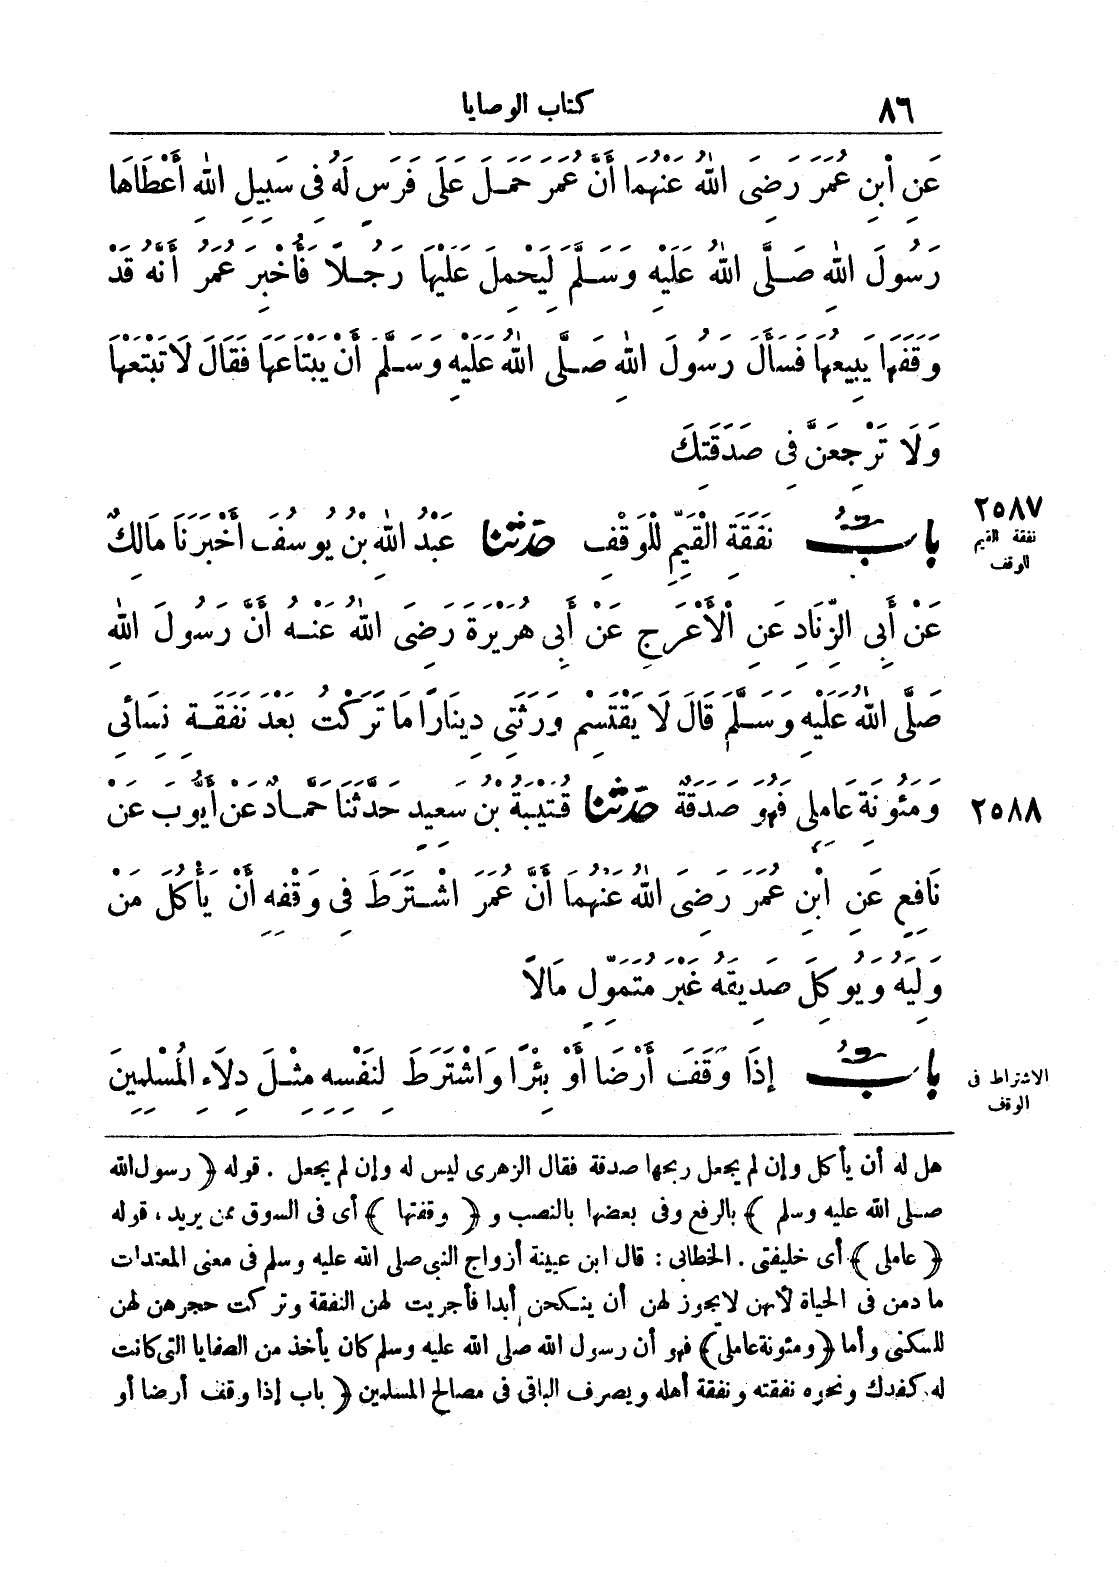 ٨٦ كتاب الوصايا
عَنِ ابْنِ عُمَرَ رَضِىَ اللهُ عَنْهُمَا أَنَّ عُمَرَ حَمَلَ عَلَى فَرَسٍ لَهُ فِى سَبِيلِ اللهِ أَعْطَاهَا
رَسُولَ اللهِ صَلَّى اللهُ عَلَيْهِ وَسَلَّمَ لِيَحْمِلَ عَلَيْهَا رَجُلًا فَأُخْبِرَ عُمَرُ أَنَّهُ قَدْ
وَقَفَهَا يَبِيعُهَا فَسَأَلَ رَسُولَ اللهِ صَلَّى اللهُ عَلَيْهِ وَسَلَّمَ أَنْ يَبْتَاعَهَا فَقَالَ لَا تَبْتَعْهَا
وَلَا تَرْجِعَنَّ فِى صَدَقَتِكَ
٢٥٨٧
نفقة القيم
الوقف
بَابُ نَفَقَةِ الْقَيِّمِ لِلْوَقْفِ حَدَّثَنَا عَبْدُ اللهِ بْنُ يُوسُفَ أَخْبَرَنَا مَالِكٌ
عَنْ أَبِى الزِّنَادِ عَنِ الْأَعْرَجِ عَنْ أَبِى هُرَيْرَةَ رَضِىَ اللهُ عَنْهُ أَنَّ رَسُولَ اللهِ
صَلَّى اللهُ عَلَيْهِ وَسَلَّمَ قَالَ لَا يَقْتَسِمْ وَرَثَتِى دِينَارًا مَا تَرَكْتُ بَعْدَ نَفَقَةِ نِسَائِى
وَمَئُونَةِ عَامِلِى فَهُوَ صَدَقَةٌ حَدَّثَنَا قُتَيْبَةُ بْنُ سَعِيدٍ حَدَّثَنَا حَمَّادٌ عَنْ أَيُّوبَ عَنْ
٢٥٨٨
نَافِعٍ عَنِ ابْنِ عُمَرَ رَضِىَ اللهُ عَنْهُمَا أَنَّ عُمَرَ اشْتَرَطَ فِى وَقْفِهِ أَنْ يَأْكُلَ مَنْ
وَلِيَهُ وَيُوكِلَ صَدِيقَهُ غَيْرَ مُتَمَوِّلٍ مَالًا
بَابُ إِذَا وَقَفَ أَرْضًا أَوْ بِئْرًا وَاشْتَرَطَ لِنَفْسِهِ مِثْلَ دِلَاءِ الْمُسْلِمِينَ
الاشتراط فى
الوقف
هل له أن يأكل وإن لم يجعل ربحها صدقة فقال الزهرى ليس له وإن لم يجعل . قوله ﴿رسول الله
صلى الله عليه وسلم﴾ بالرفع وفى بعضها بالنصب و ﴿وقفتها﴾ أى فى السوق ممن يريد، قوله
﴿عاملى﴾ أى خليفتى . الخطابى : قال ابن عيينة أزواج النبى صلى الله عليه وسلم فى معنى المعتدات
ما دمن فى الحياة لأنهن لا يجوز لهن أن ينكحن أبدا فأجريت لهن النفقة وتركت حجرهن لهن
للسكنى وأما ﴿ومئونة عاملى﴾ فهو أن رسول الله صلى الله عليه وسلم كان يأخذ من الصفايا التى كانت
له كفدك ونحوه نفقته ونفقة أهله ويصرف الباقى فى مصالح المسلمين ﴿باب إذا وقف أرضا أو